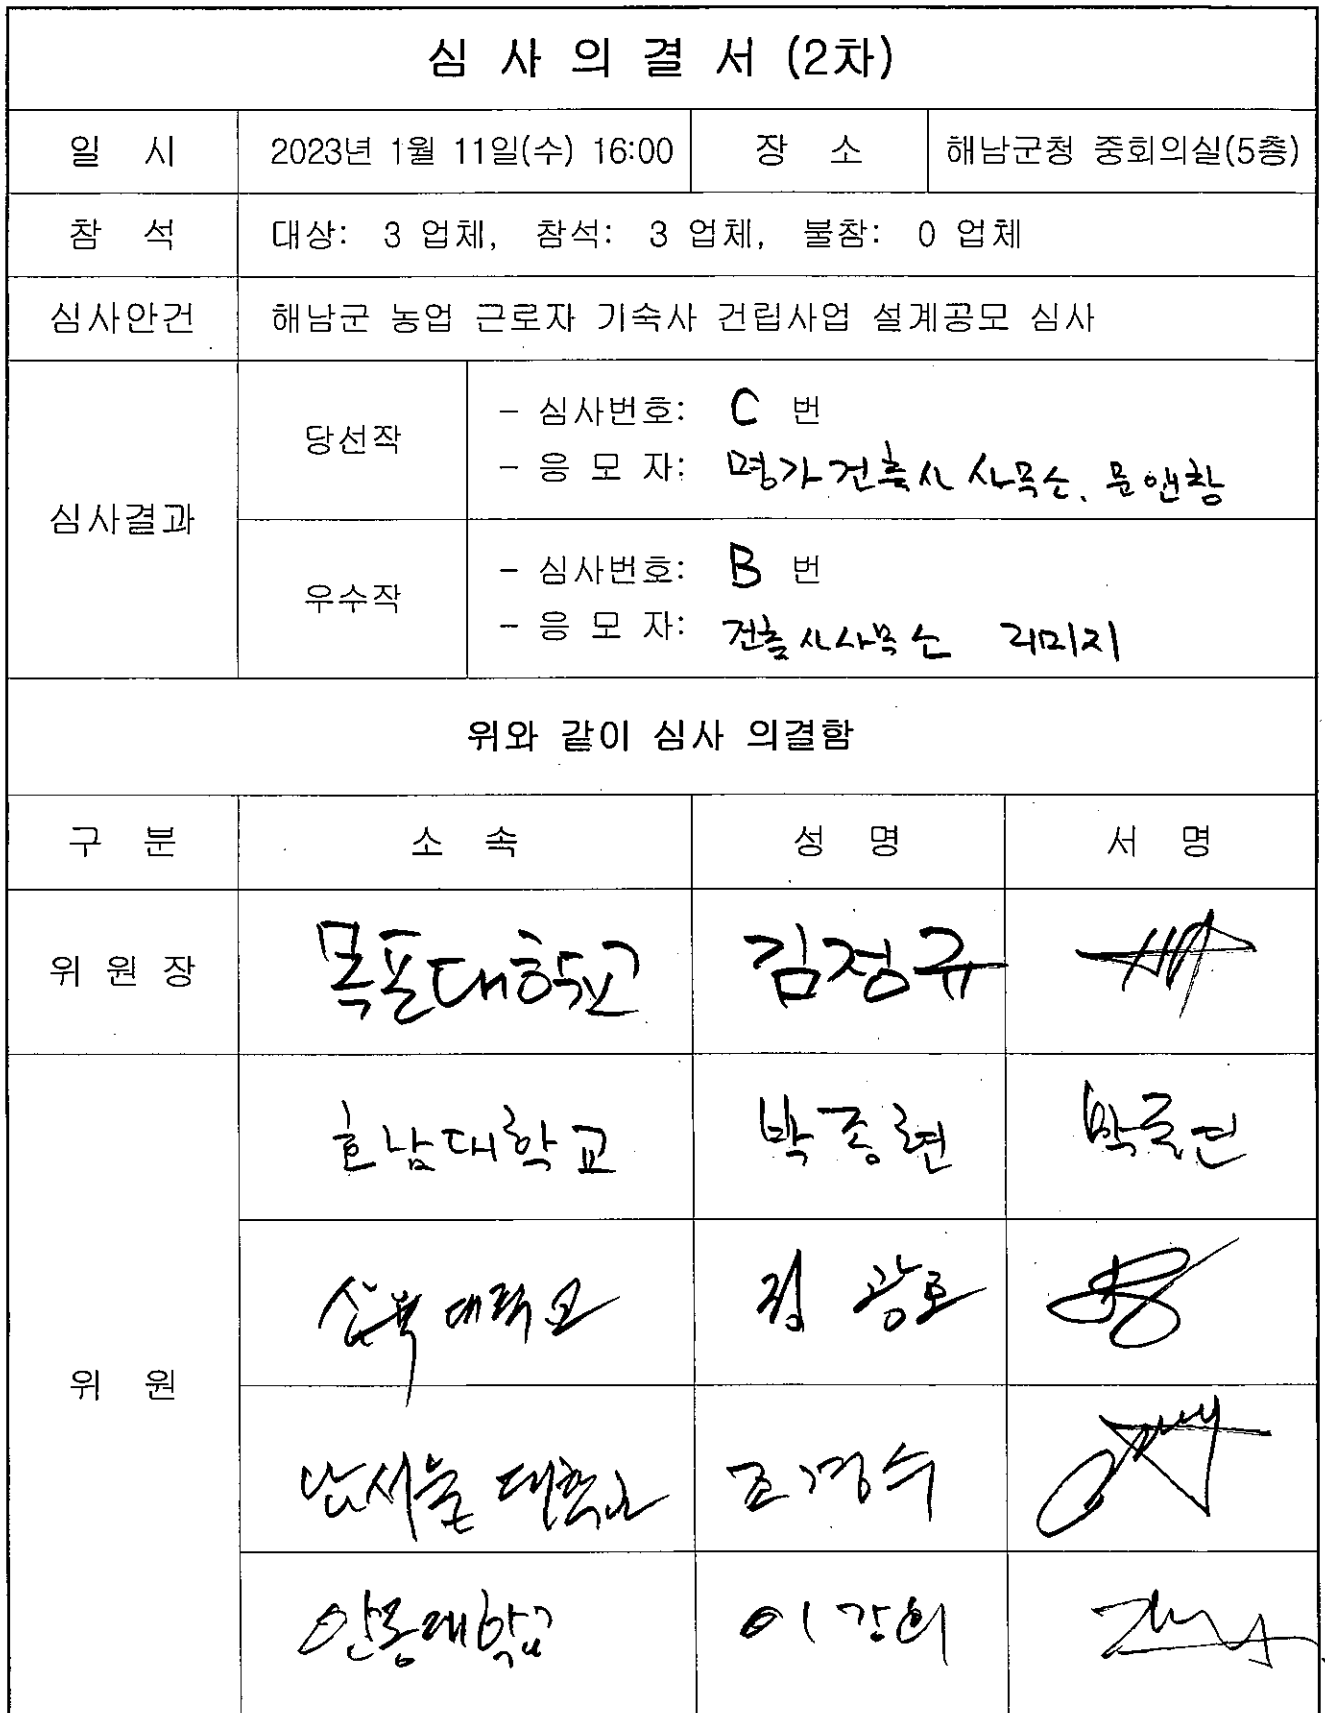 심 사 의 결 서 (2차)
일 시 2023년 1월 11일(수) 16:00 장 소 해남군청 중회의실(5층)
참 석 대상: 3 업체, 참석: 3 업체, 불참: 0 업체
심사안건 해남군 농업 근로자 기숙사 건립사업 설계공모 심사
심사결과
당선작
- 심사번호: C 번
- 응 모 자: 명가건축사사무소, 문앤창
우수작
- 심사번호: B 번
- 응 모 자: 건축사사무소 리미지
위와 같이 심사 의결함
구 분 소 속 성 명 서 명
위 원 장 목포대학교 김정규
위 원
호남대학교 박종련
대학교 정 광호
남서울 대학교 조경수
안동대학교 이강희